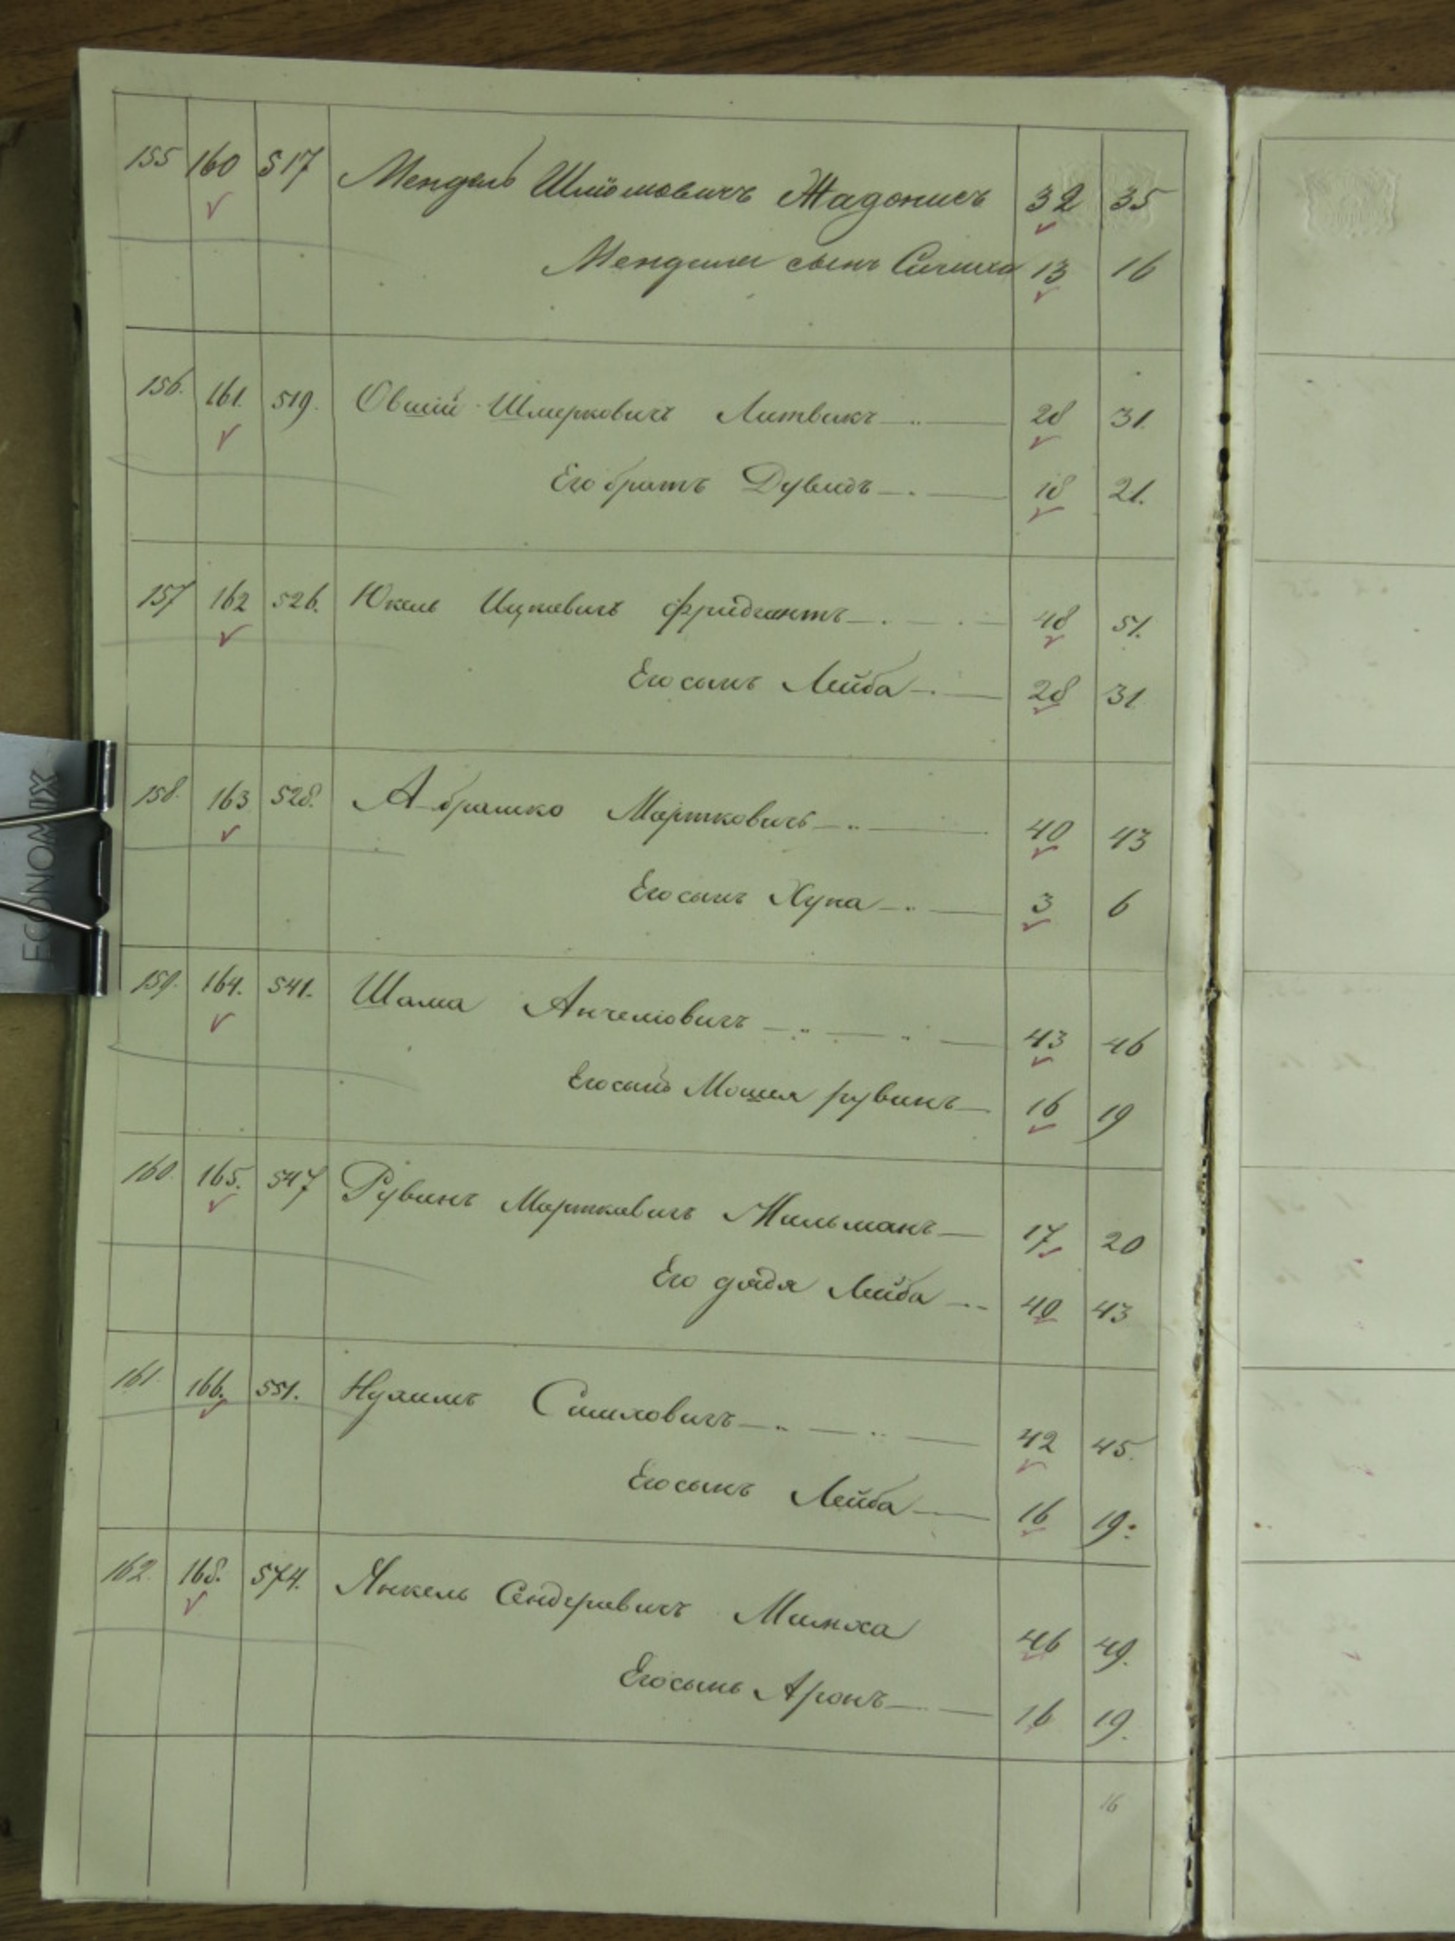 155 160 517 Мендель Шлiомовичъ Жадонисъ 32 35
Менделя сынъ Симха 13 16
156. 161. 519. Овшiй Шмерковичъ Литвакъ 28 31.
Его братъ Дувидъ 18 21.
157 162 526. Юкель Ицковичъ Фридгантъ 48 51.
Его сынъ Лейба 28 31
158. 163 528. Абрашко Мортковичъ 40 43
Его сынъ Хуна 3 6
159. 164. 541. Шама Анчелiовичъ 43 46
Его сынъ Мошля Рувинъ 16 19
160. 165. 547 Рувинъ Мортковичъ Жильманъ 17 20
Его дядя Лейба 40 43
161. 166. 551. Нухимъ Симховичъ 42 45.
Его сынъ Лейба 16 19.
162. 168. 574. Янкель Сендеровичъ Милиха 46 49.
Его сынъ Аронъ 16 19.
16
ECONOMIX